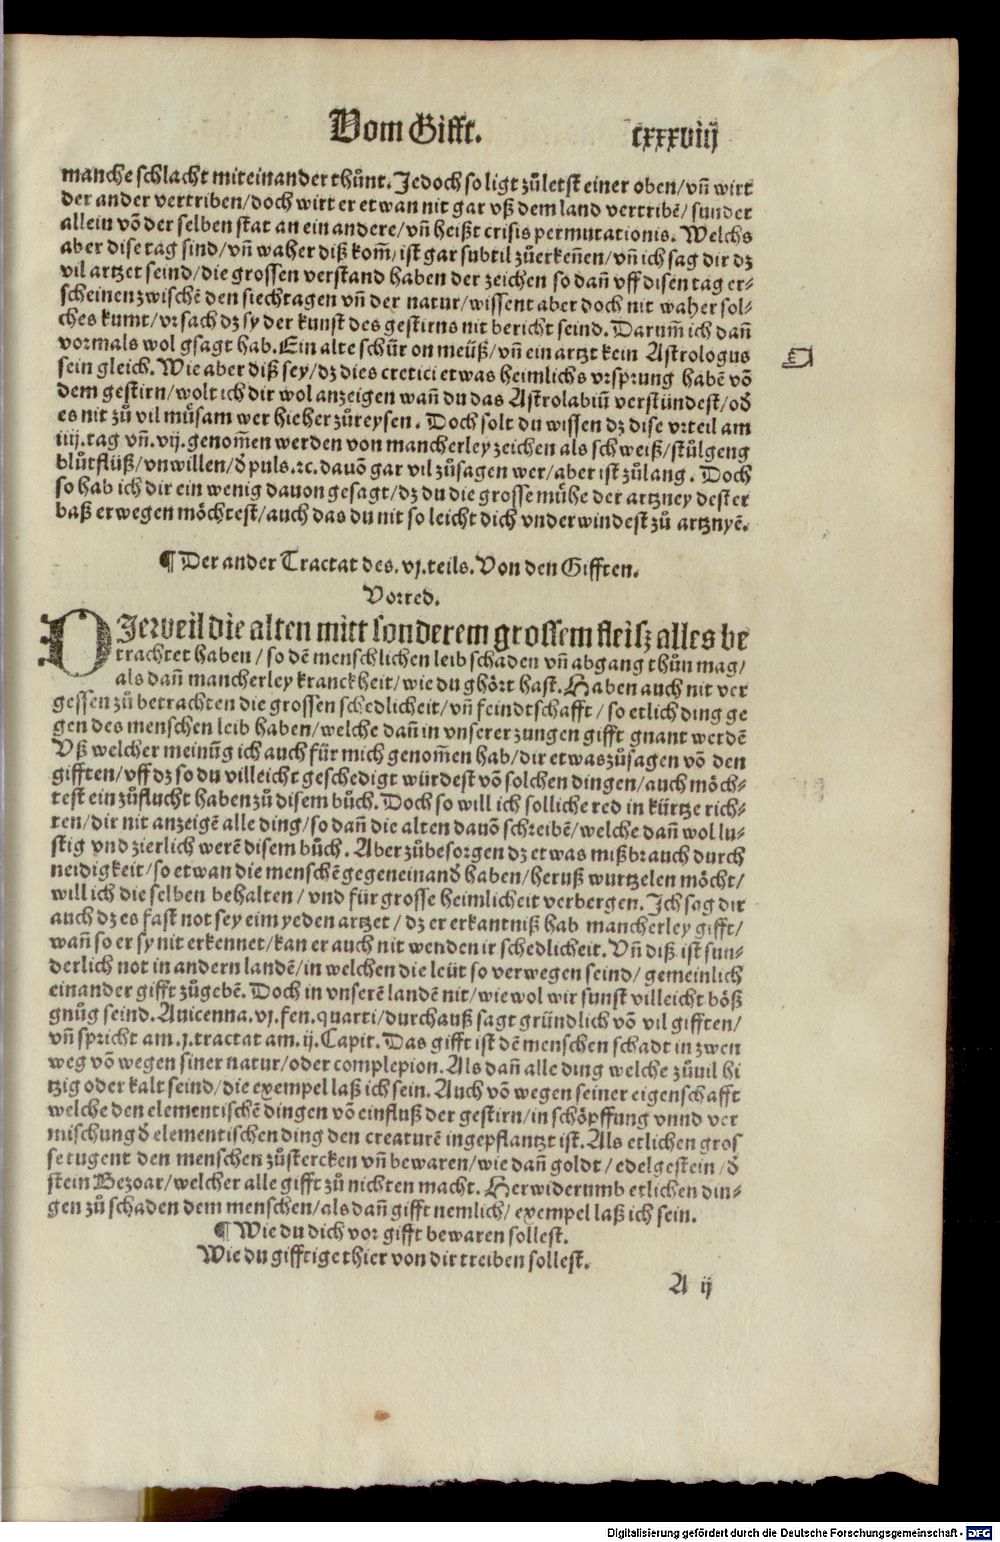 Vom Gifft.
cxxxviij
manche schlacht miteinander thůnt. Jedoch so ligt zůletst einer oben/vñ wirt
der ander vertriben/doch wirt er etwan nit gar vß dem land vertribẽ/sunder
allein võ der selben stat an ein andere/vñ heißt crisis permutationis. Welchs
aber dise tag sind/vñ waher diß kom̃/ist gar subtil zůerkeñen/vñ ich sag dir dz
vil artzet seind/die grossen verstand haben der zeichen so dañ vff disen tag er-
scheinen zwischẽ den siechtagen vñ der natur/wissent aber doch nit waher sol-
ches kumt/vrsach dz sy der kunst des gestirns nit bericht seind. Darum̃ ich dañ
vormals wol gsagt hab. Ein alte schür on meüß/vñ ein artzt kein Astrologus
sein gleich. Wie aber diß sey/dz dies cretici etwas heimlichs vrsprung habẽ võ
dem gestirn/wolt ich dir wol anzeigen wañ du das Astrolabiũ verstündest/oð
es nit zů vil můsam wer hieher zůreysen. Doch solt du wissen dz dise vrteil am
iiij. tag vñ. vij. genom̃en werden von mancherley zeichen als schweiß/stůlgeng
blůtflüß/vnwillen/ð puls. ꝛc. dauõ gar vil zůsagen wer/aber ist zůlang. Doch
so hab ich dir ein wenig dauon gesagt/dz du die grosse mühe der artzney dester
baß erwegen möchtest/auch das du nit so leicht dich vnderwindest zů artznyẽ.
¶ Der ander Tractat des. vj. teils. Von den Gifften.
Vorred.
DJerweil die alten mitt sonderem grossem fleisz alles be
trachtet haben/so dẽ menschlichen leib schaden vñ abgang thůn mag/
als dañ mancherley kranckheit/wie du ghört hast. Haben auch nit ver
gessen zů betrachten die grossen schedlicheit/vñ feindtschafft/so etlich ding ge
gen des menschen leib haben/welche dañ in vnserer zungen gifft gnant werdẽ
Vß welcher meinũg ich auch für mich genom̃en hab/dir etwas zůsagen võ den
gifften/vff dz so du villeicht geschedigt würdest võ solchen dingen/auch möch-
test ein zůflucht haben zů disem bůch. Doch so will ich solliche red in kürtze rich-
ten/dir nit anzeigẽ alle ding/so dañ die alten dauõ schreibẽ/welche dañ wol lu-
stig vnd zierlich werẽ disem bůch. Aber zůbesorgen dz etwas mißbrauch durch
neidigkeit/so etwan die menschẽ gegeneinanð haben/heruß wurtzelen möcht/
will ich die selben behalten/vnd für grosse heimlicheit verbergen. Ich sag dir
auch dz es fast not sey eim yeden artzet/dz er erkantniß hab mancherley gifft/
wañ so er sy nit erkennet/kan er auch nit wenden ir schedlicheit. Vñ diß ist sun-
derlich not in andern landẽ/in welchen die leüt so verwegen seind/gemeinlich
einander gifft zůgebẽ. Doch in vnserẽ landẽ nit/wie wol wir sunst villeicht böß
gnůg seind. Auicenna. vj. fen. quarti/durchauß sagt gründlich võ vil gifften/
vñ spricht am. j. tractat am. ij. Capit. Das gifft ist dẽ menschen schadt in zwen
weg võ wegen siner natur/oder complexion. Als dañ alle ding welche zůuil hi
tzig oder kalt seind/die exempel laß ich sein. Auch võ wegen seiner eigenschafft
welche den elementischẽ dingen võ einfluß der gestirn/in schöpffung vnnd ver
mischung ð elementischen ding den creaturẽ ingepflantzt ist. Als etlichen gros
se tugent den menschen zůstercken vñ bewaren/wie dañ goldt/edelgestein/ð
stein Bezoar/welcher alle gifft zů nichten macht. Herwiderumb etlichen din-
gen zů schaden dem menschen/als dañ gifft nemlich/exempel laß ich sein.
¶ Wie du dich vor gifft bewaren sollest.
Wie du gifftige thier von dir treiben sollest.
A ij
Digitalisierung gefördert durch die Deutsche Forschungsgemeinschaft - DFG